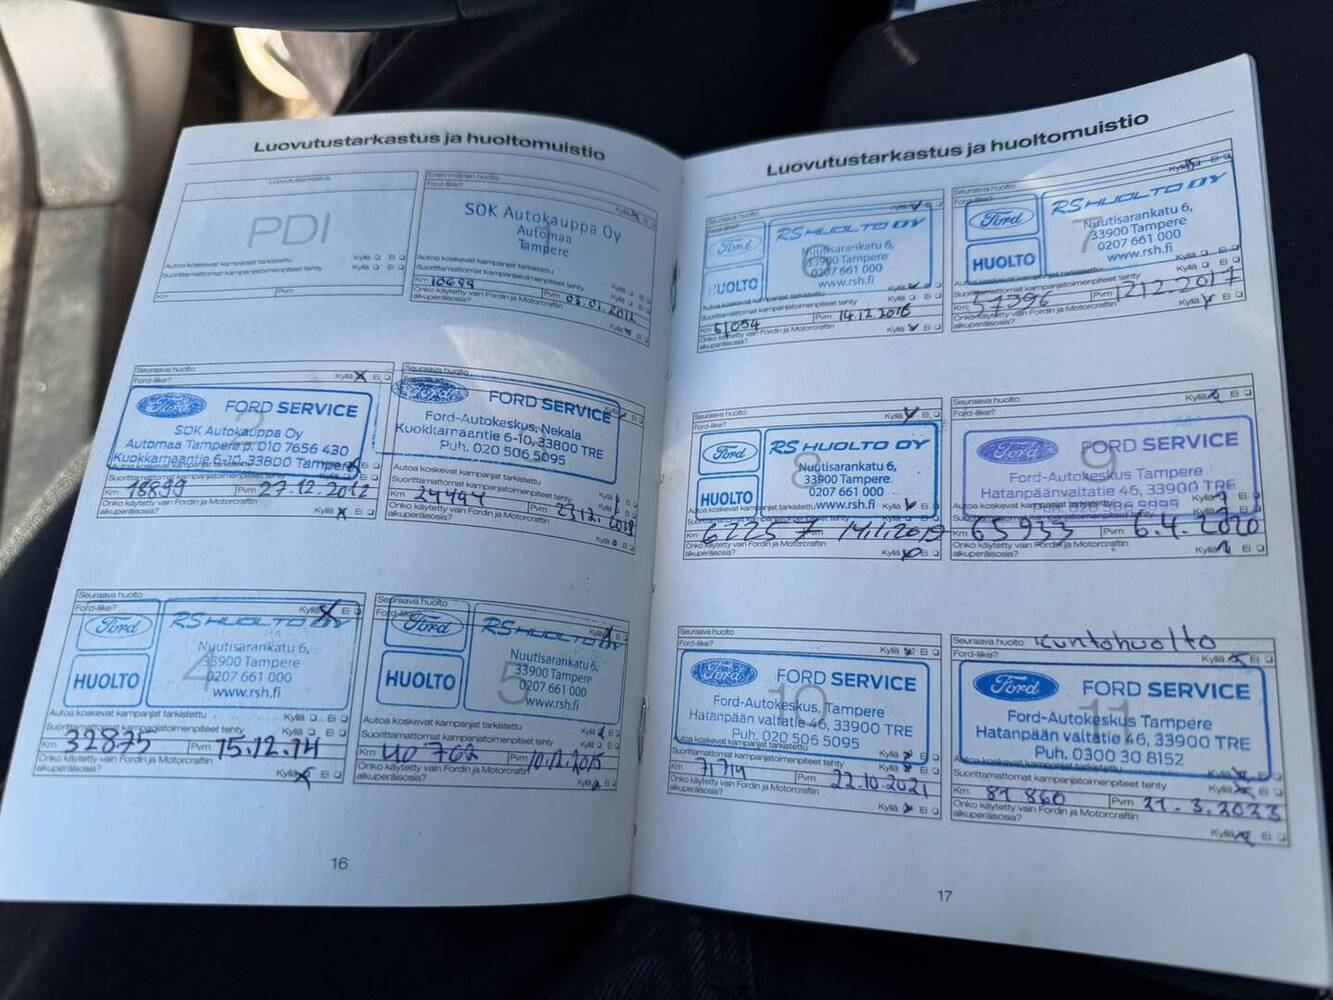 Luovutustarkastus ja huoltomuistio
Luovutustarkastus
PDI
Autoa koskevat kampanjat tarkistettu Kyllä Ei
Suorittamattomat kampanjatoimenpiteet tehty Kyllä Ei
Km Pvm
Ensimmäinen huolto
Ford-liike? Kyllä
SOK Autokauppa Oy
Automaa
Tampere
Autoa koskevat kampanjat tarkistettu Kyllä Ei
Suorittamattomat kampanjatoimenpiteet tehty Kyllä Ei
Km 10699 Pvm 03.01.2012
Onko käytetty vain Fordin ja Motorcraftin
alkuperäisosia? Kyllä Ei
Seuraava huolto
Ford-liike? Kyllä Ei
2
Ford FORD SERVICE
SOK Autokauppa Oy
Automaa Tampere p. 010 7656 430
Kuokkamaantie 6-10, 33800 Tampere
Autoa koskevat kampanjat tarkistettu
Suorittamattomat kampanjatoimenpiteet tehty
Km 18899 Pvm 27.12.2012
Onko käytetty vain Fordin ja Motorcraftin
alkuperäisosia? Kyllä Ei
Seuraava huolto
Ford FORD SERVICE
Ford-Autokeskus, Nekala
Kuokkamaantie 6-10, 33800 TRE
Puh. 020 506 5095
Autoa koskevat kampanjat tarkistettu
Suorittamattomat kampanjatoimenpiteet tehty
Km 24494 Pvm
Onko käytetty vain Fordin ja Motorcraftin
alkuperäisosia? Kyllä Ei
Seuraava huolto
Ford-liike? Kyllä Ei
4
Ford RS HUOLTO OY
HUOLTO
Nuutisarankatu 6,
33900 Tampere
0207 661 000
www.rsh.fi
Autoa koskevat kampanjat tarkistettu Kyllä Ei
Suorittamattomat kampanjatoimenpiteet tehty Kyllä Ei
Km 32875 Pvm 15.12.14
Onko käytetty vain Fordin ja Motorcraftin
alkuperäisosia? Kyllä Ei
Seuraava huolto
Ford-liike? Kyllä
5
Ford RS HUOLTO OY
HUOLTO
Nuutisarankatu 6,
33900 Tampere
0207 661 000
www.rsh.fi
Autoa koskevat kampanjat tarkistettu Kyllä Ei
Suorittamattomat kampanjatoimenpiteet tehty Kyllä Ei
Km 40 762 Pvm 10.12.2015
Onko käytetty vain Fordin ja Motorcraftin
alkuperäisosia? Kyllä Ei
16
Luovutustarkastus ja huoltomuistio
Seuraava huolto
Ford-liike? Kyllä Ei
6
Ford RS HUOLTO OY
HUOLTO
Nuutisarankatu 6,
33900 Tampere
0207 661 000
www.rsh.fi
Autoa koskevat kampanjat tarkistettu Kyllä Ei
Suorittamattomat kampanjatoimenpiteet tehty Kyllä Ei
Km Pvm 14.12.2016
Onko käytetty vain Fordin ja Motorcraftin
alkuperäisosia? Kyllä Ei
Seuraava huolto Kyllä Ei
7
Ford RS HUOLTO OY
HUOLTO
Nuutisarankatu 6,
33900 Tampere
0207 661 000
www.rsh.fi
Autoa koskevat kampanjat tarkistettu Kyllä Ei
Suorittamattomat kampanjatoimenpiteet tehty Kyllä Ei
Km 57396 Pvm 12.12.2017
Onko käytetty vain Fordin ja Motorcraftin
alkuperäisosia? Kyllä Ei
Seuraava huolto
Ford-liike? Kyllä Ei
8
Ford RS HUOLTO OY
HUOLTO
Nuutisarankatu 6,
33900 Tampere
0207 661 000
www.rsh.fi
Autoa koskevat kampanjat tarkistettu Kyllä Ei
Suorittamattomat kampanjatoimenpiteet tehty
Km 62257 14.1.2019
Onko käytetty vain Fordin ja Motorcraftin
alkuperäisosia? Kyllä Ei
Seuraava huolto
Ford-liike? Kyllä Ei
9
Ford FORD SERVICE
Ford-Autokeskus Tampere
Hatanpäänvaltatie 46, 33900 TRE
Autoa koskevat kampanjat tarkistettu Kyllä Ei
Suorittamattomat kampanjatoimenpiteet tehty Kyllä Ei
Km 65933 Pvm 6.4.2020
Onko käytetty vain Fordin ja Motorcraftin
alkuperäisosia? Kyllä Ei
Seuraava huolto
Ford-liike? Kyllä Ei
10
Ford FORD SERVICE
Ford-Autokeskus, Tampere
Hatanpään valtatie 46, 33900 TRE
Puh. 020 506 5095
Autoa koskevat kampanjat tarkistettu Kyllä Ei
Suorittamattomat kampanjatoimenpiteet tehty Kyllä Ei
Km 71714 Pvm 22.10.2021
Onko käytetty vain Fordin ja Motorcraftin
alkuperäisosia? Kyllä Ei
Seuraava huolto Kuntohuolto
Ford-liike? Kyllä Ei
11
Ford FORD SERVICE
Ford-Autokeskus Tampere
Hatanpään valtatie 46, 33900 TRE
Puh. 0300 30 8152
Autoa koskevat kampanjat tarkistettu Kyllä Ei
Suorittamattomat kampanjatoimenpiteet tehty Kyllä Ei
Km 81 860 Pvm 21.3.2023
Onko käytetty vain Fordin ja Motorcraftin
alkuperäisosia? Kyllä Ei
17